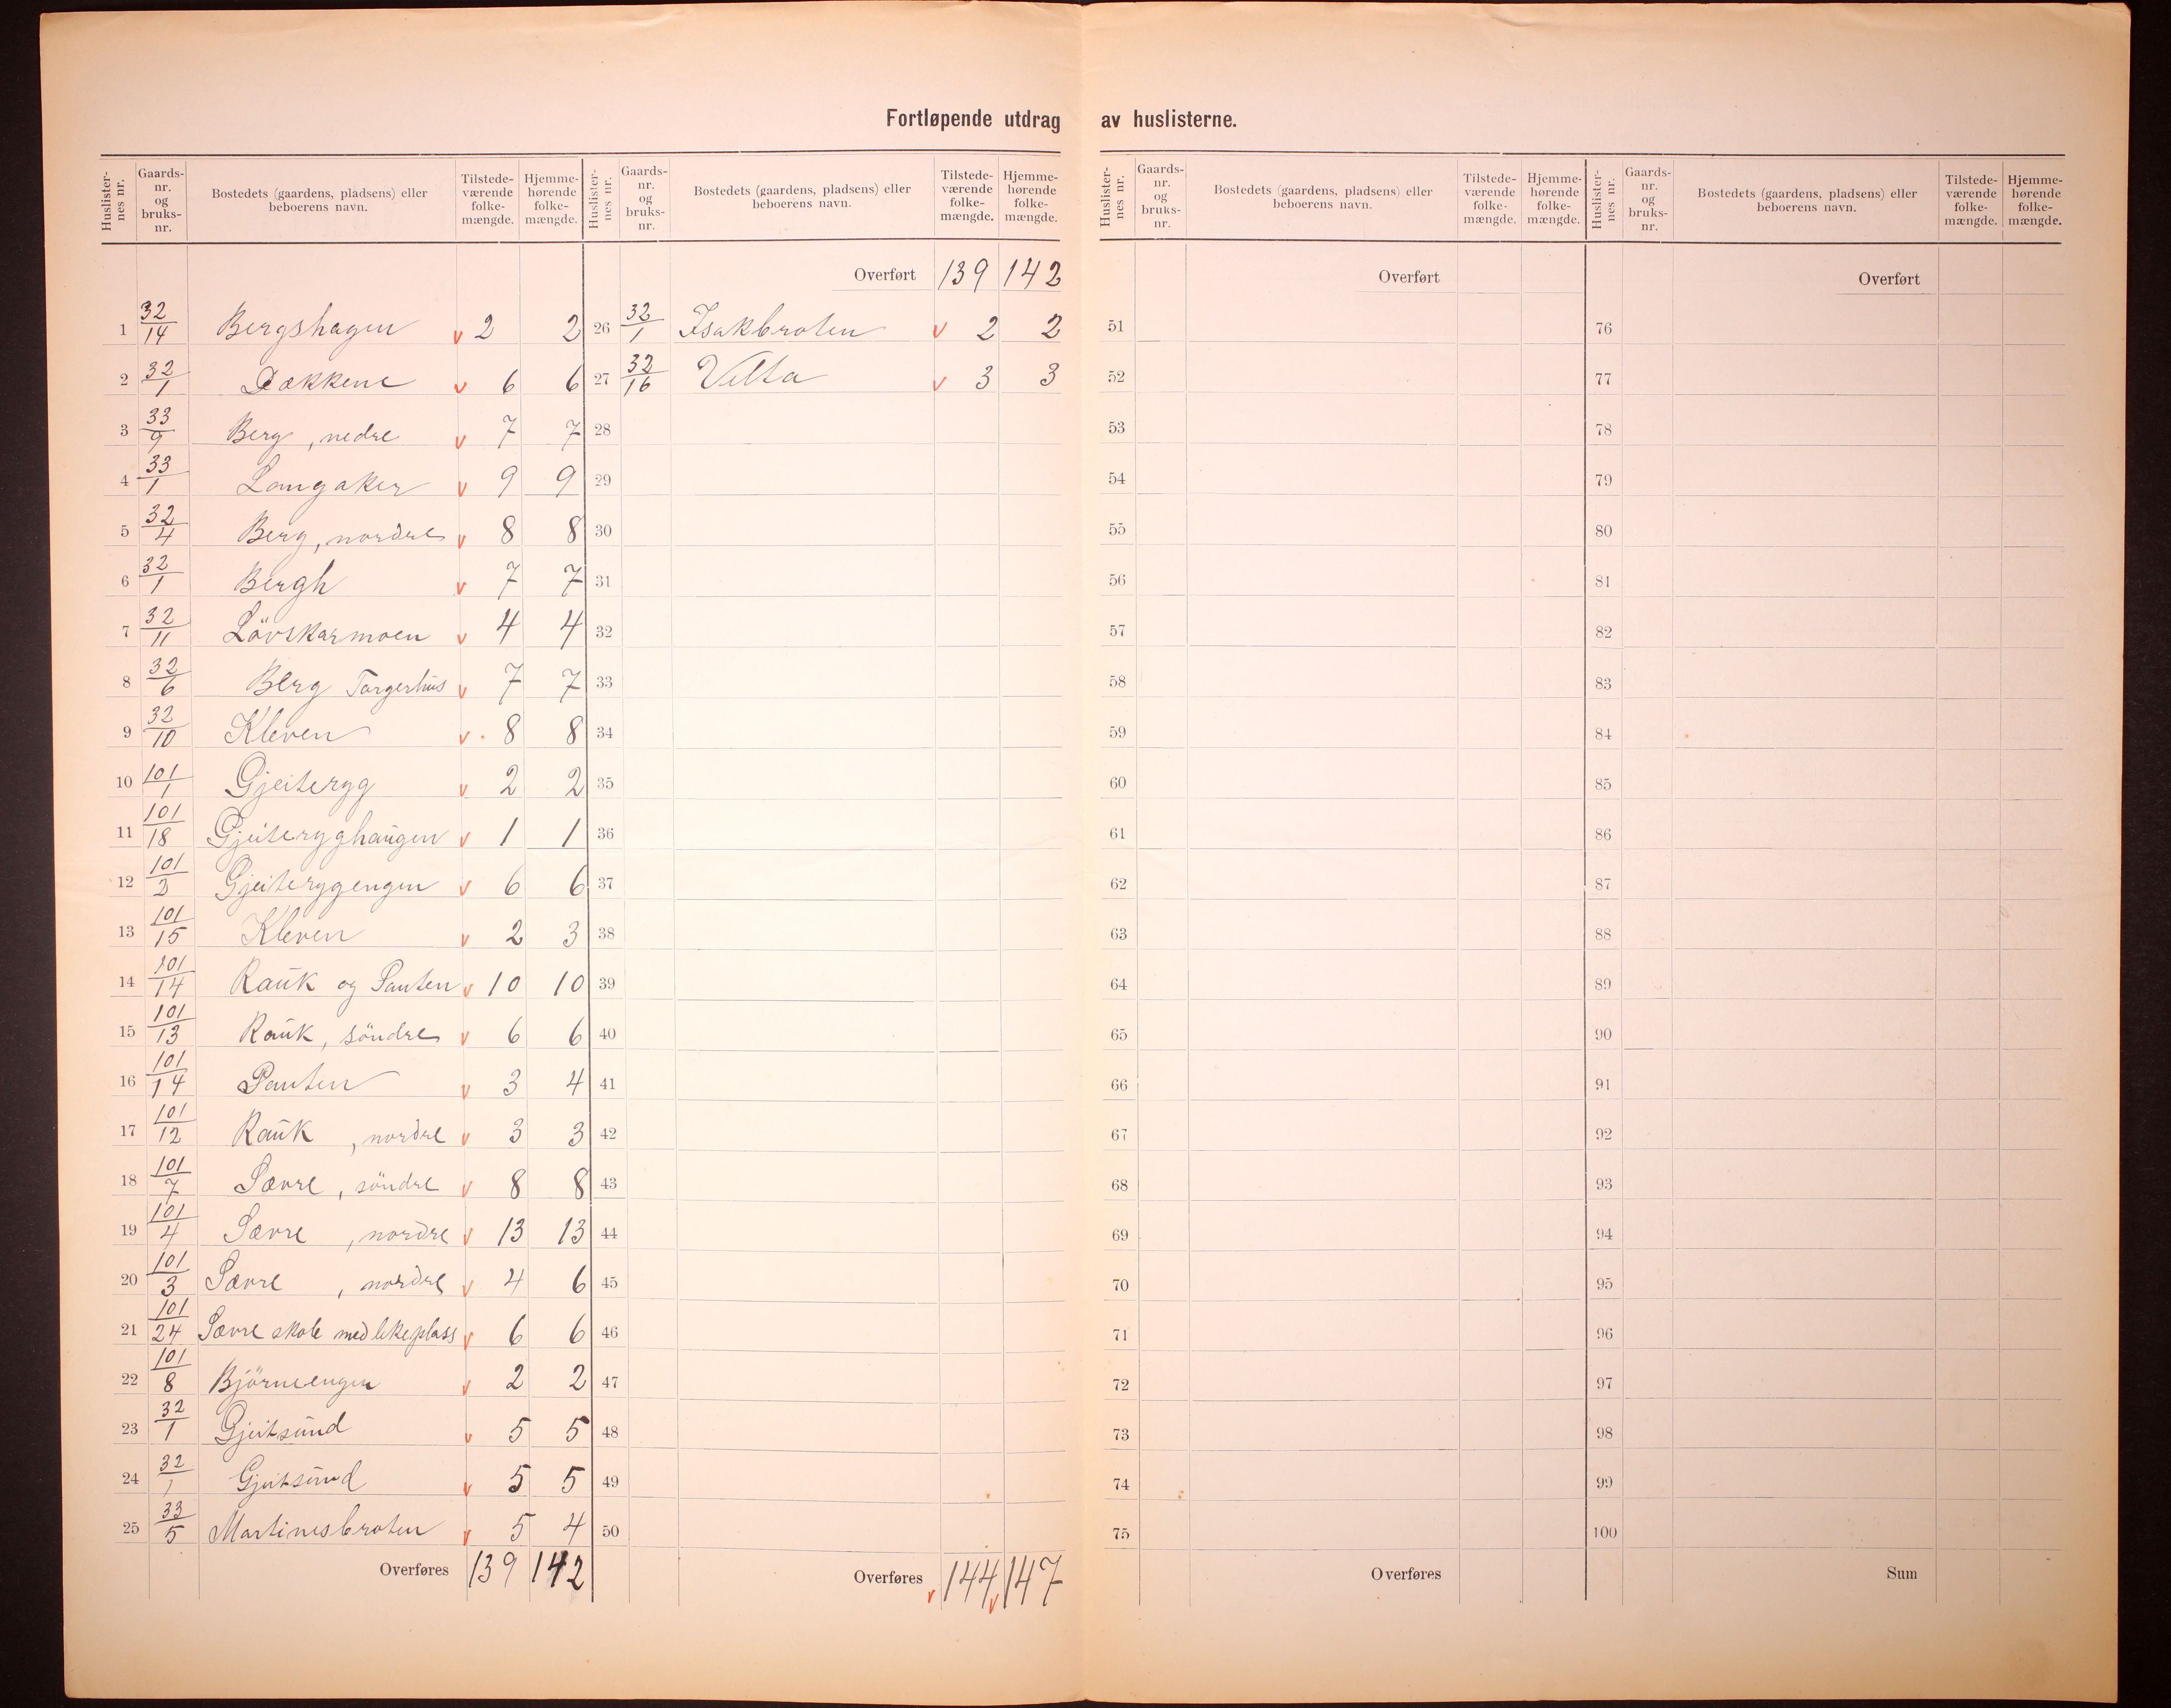 Fortløpende utdrag av huslisterne.
Huslister-nes nr. Gaards-nr. og bruks-nr. Bostedets (gaardens, pladsens) eller beboerens navn. Tilstede-værende folke-mængde. Hjemme-hørende folke-mængde.
1 32/14 Bergshagen v 2 2
2 32/1 Dækkene v 6 6
3 33/9 Berg, nedre v 7 7
4 33/1 Langaker v 9 9
5 32/4 Berg, nordre v 8 8
6 32/1 Bergh v 7 7
7 32/11 Lövskarmoen v 4 4
8 32/6 Berg Torgerhus v 7 7
9 32/10 Kleven v 8 8
10 101/1 Gjeiteryg v 2 2
11 101/18 Gjeiteryghaugen v 1 1
12 101/2 Gjeiterygengen v 6 6
13 101/15 Kleven v 2 3
14 101/14 Rauk og Santen v 10 10
15 101/13 Rauk, söndre v 6 6
16 101/14 Santen v 3 4
17 101/12 Rauk, nordre v 3 3
18 101/7 Sævre, söndre v 8 8
19 101/4 Sævre, nordre v 13 13
20 101/3 Sævre, nordre v 4 6
21 101/24 Sævre skole med lekeplass v 6 6
22 101/8 Björneengen v 2 2
23 32/1 Gjeitsund v 5 5
24 32/1 Gjeitsund v 5 5
25 33/5 Martinesbroten v 5 4
Overføres 139 142
Huslister-nes nr. Gaards-nr. og bruks-nr. Bostedets (gaardens, pladsens) eller beboerens navn. Tilstede-værende folke-mængde. Hjemme-hørende folke-mængde.
Overført 139 142
26 32/1 Isakbroten v 2 2
27 32/16 Vilta v 3 3
28
29
30
31
32
33
34
35
36
37
38
39
40
41
42
43
44
45
46
47
48
49
50
Overføres v 144 v 147
Huslister-nes nr. Gaards-nr. og bruks-nr. Bostedets (gaardens, pladsens) eller beboerens navn. Tilstede-værende folke-mængde. Hjemme-hørende folke-mængde.
Overført
51
52
53
54
55
56
57
58
59
60
61
62
63
64
65
66
67
68
69
70
71
72
73
74
75
Overføres
Huslister-nes nr. Gaards-nr. og bruks-nr. Bostedets (gaardens, pladsens) eller beboerens navn. Tilstede-værende folke-mængde. Hjemme-hørende folke-mængde.
Overført
76
77
78
79
80
81
82
83
84
85
86
87
88
89
90
91
92
93
94
95
96
97
98
99
100
Sum